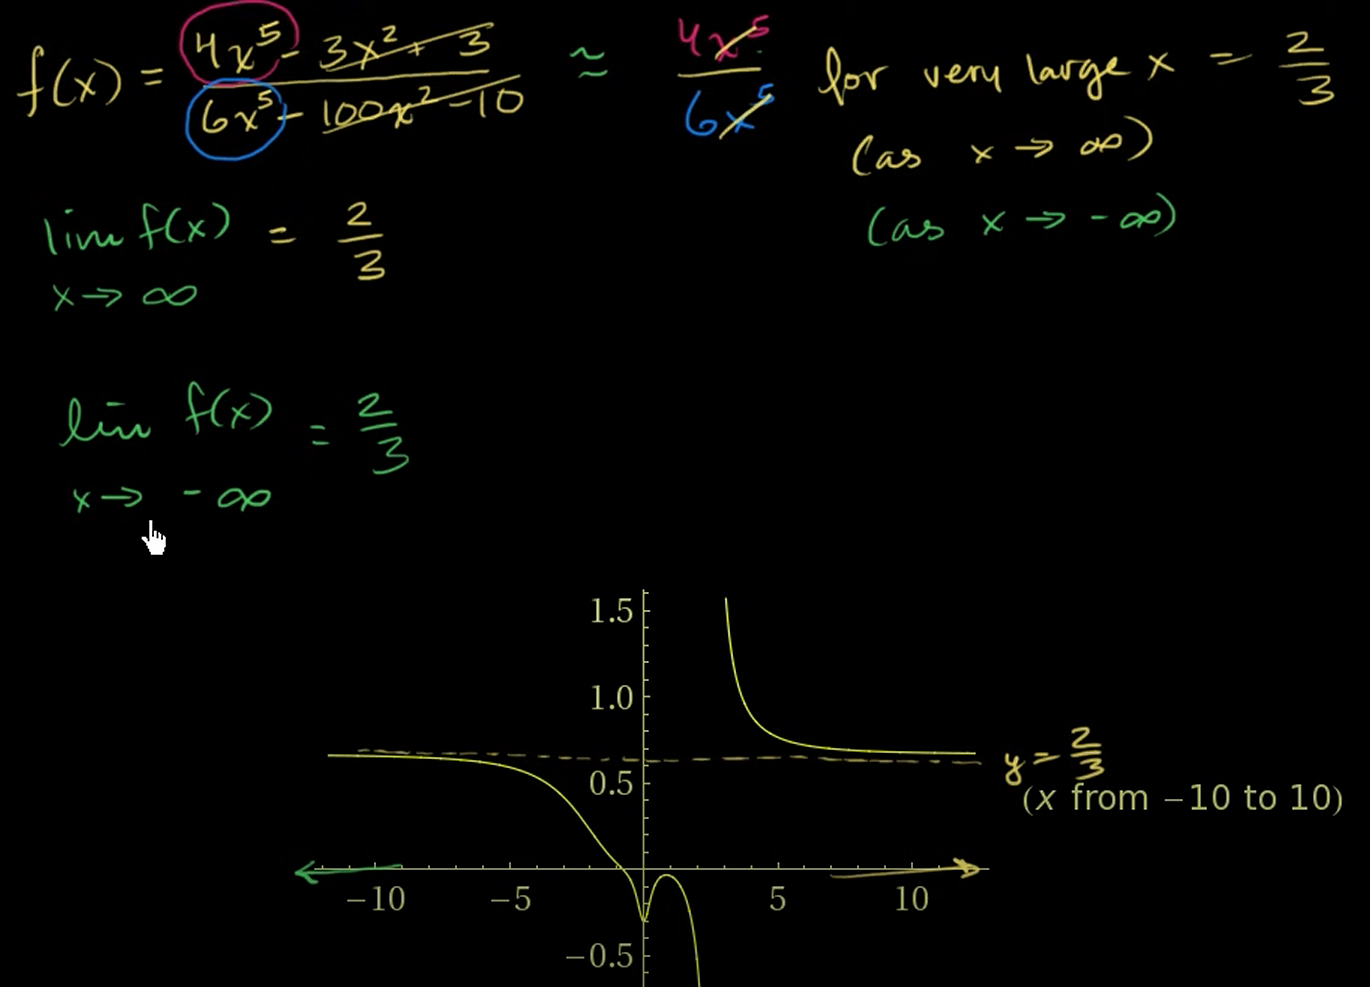 f(x) = (4x⁵ - 3x² + 3)/(6x⁵ - 100x² - 10) ≈ 4x⁵/6x⁵ for very large x = 2/3
(as x → ∞)
(as x → -∞)
lim f(x) = 2/3
x → ∞
lim f(x) = 2/3
x → -∞
1.5
1.0
0.5
y = 2/3
(x from −10 to 10)
−10 −5 5 10
−0.5